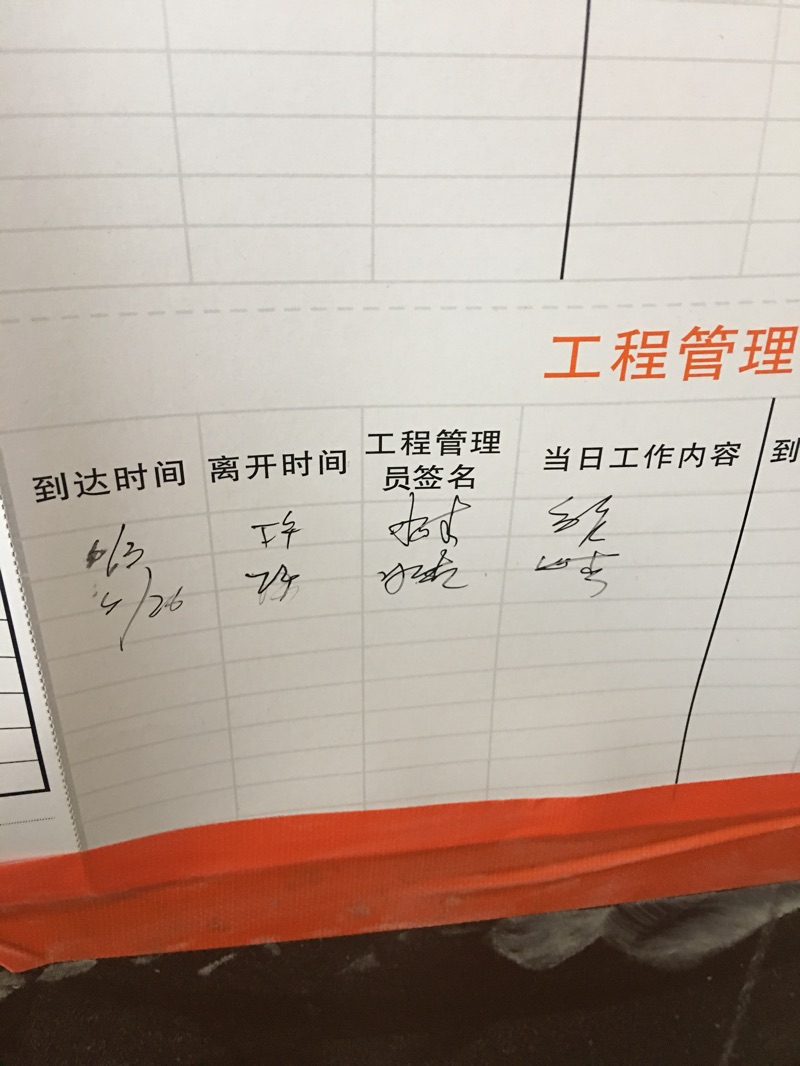 工程管理
到达时间 离开时间 工程管理 当日工作内容 到
员签名
6/3 下午
4/26 下午